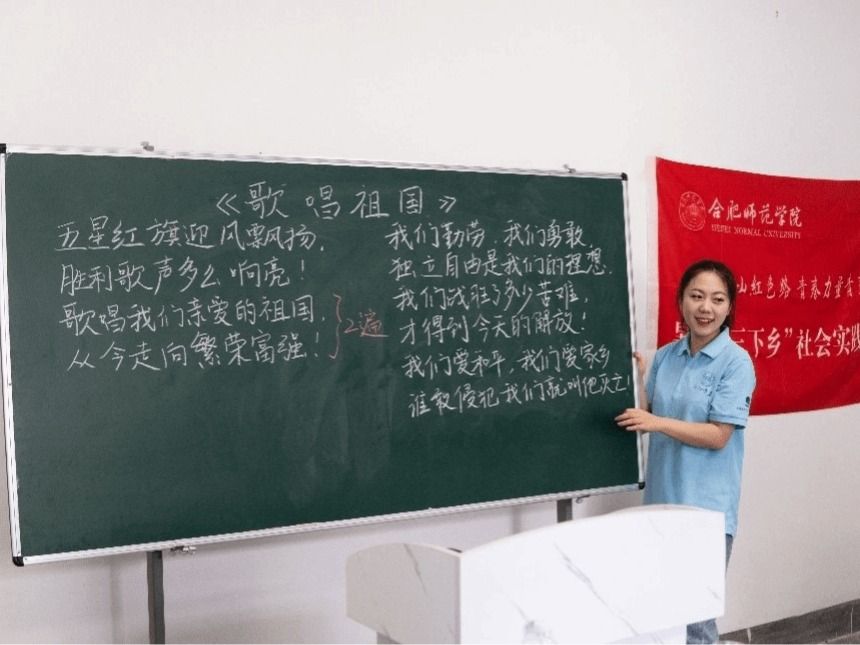 《歌唱祖国》
五星红旗迎风飘扬,
胜利歌声多么响亮!
歌唱我们亲爱的祖国,
从今走向繁荣富强!
2遍
我们勤劳,我们勇敢,
独立自由是我们的理想.
我们战胜了多少苦难,
才得到今天的解放!
我们爱和平,我们爱家乡
谁敢侵犯我们就叫他灭亡!
合肥师范学院
HEFEI NORMAL UNIVERSITY
山红色路 青春力量
下乡”社会实践